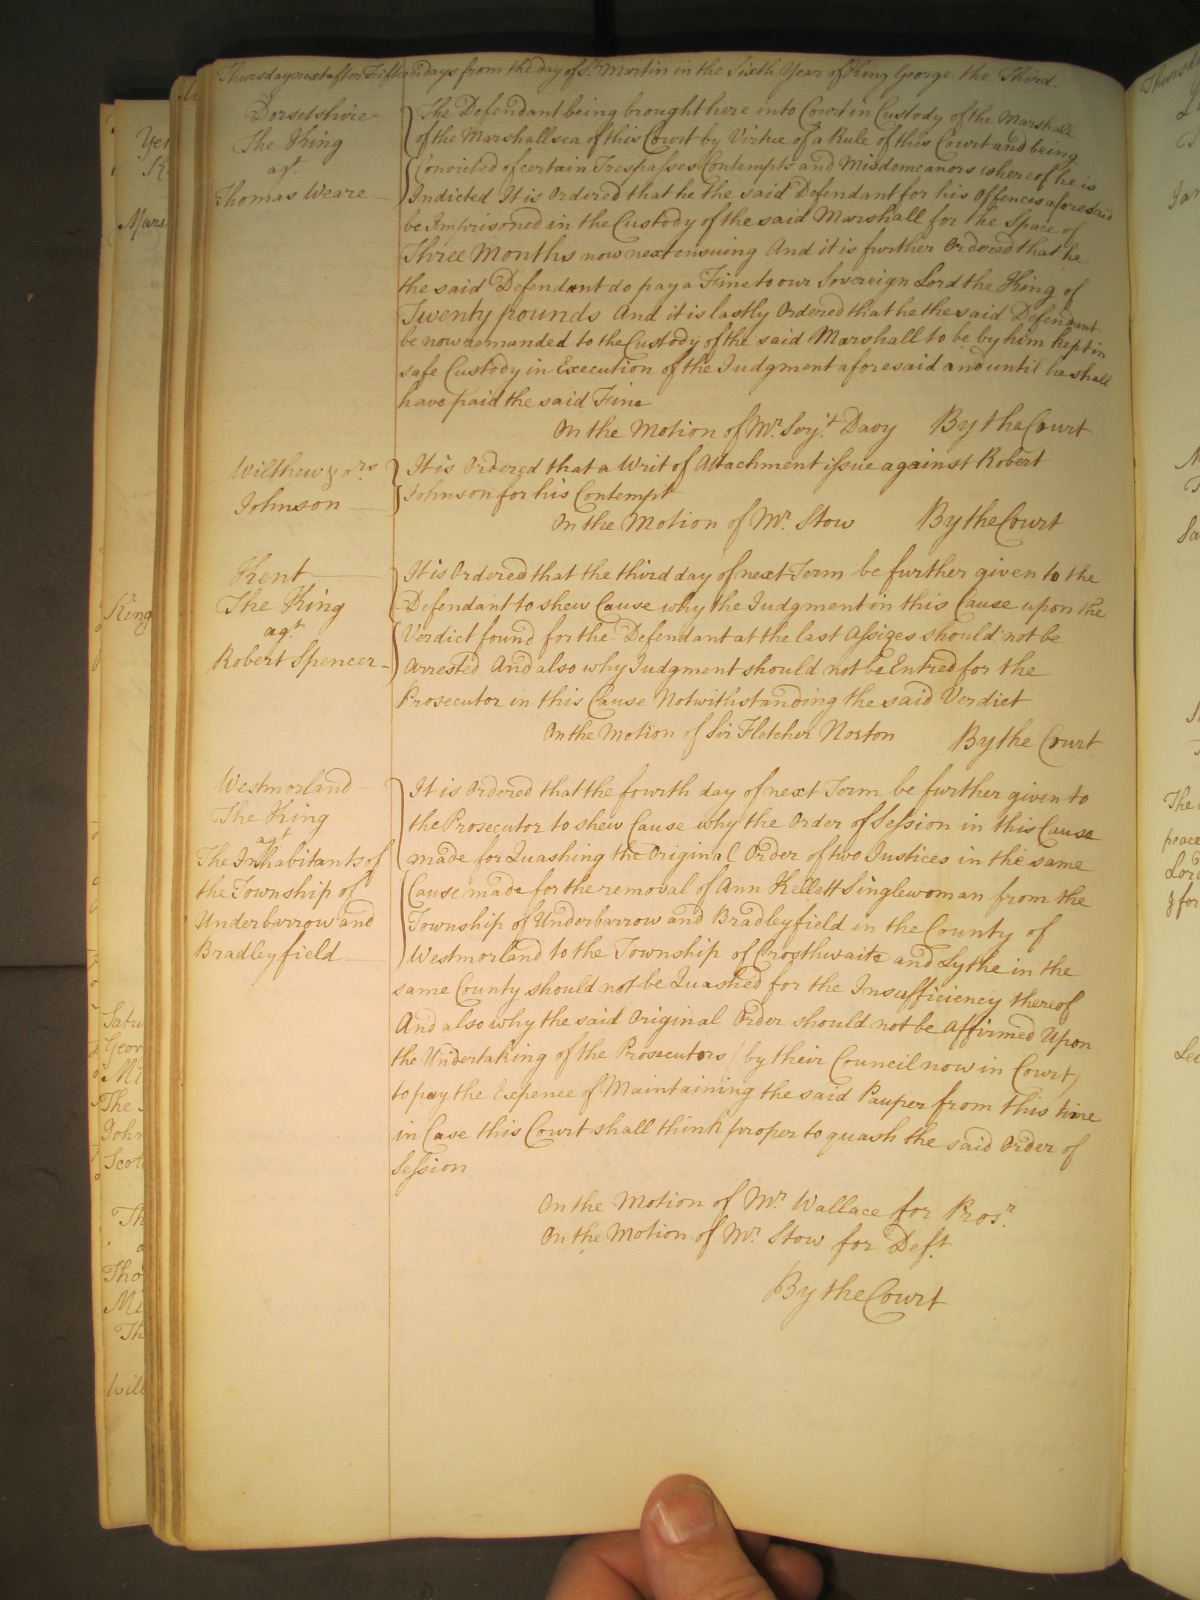 Thursday next after Fifteen days from the day of St. Martin in the Sixth Year of King George the Third.
Dorsetshire
The King
agt.
Thomas Weare
The Defendant being brought here into Court in Custody of the Marshall
of the Marshallsea of this Court by Virtue of a Rule of this Court and being
Convicted of certain Trespasses Contempts and Misdemeanors whereof he is
Indicted It is Ordered that he the said Defendant for his Offences aforesaid
be Imprisoned in the Custody of the said Marshall for the Space of
Three Months now next ensuing And it is further Ordered that he
the said Defendant do pay a Fine to our Sovereign Lord the King of
Twenty pounds And it is lastly Ordered that he the said Defendant
be now remanded to the Custody of the said Marshall to be by him kept in
safe Custody in Execution of the Judgment aforesaid and until he shall
have paid the said Fine
On the Motion of Mr. Serjt. Davy By the Court
Wilthew & ors.
Johnson
It is Ordered that a Writ of Attachment issue against Robert
Johnson for his Contempt
On the Motion of Mr. Stow By the Court
Kent
The King
agt.
Robert Spencer
It is Ordered that the third day of next Term be further given to the
Defendant to shew Cause why the Judgment in this Cause upon the
Verdict found for the Defendant at the last Assizes should not be
Arrested And also why Judgment should not be Entred for the
Prosecutor in this Cause Notwithstanding the said Verdict
On the Motion of Sir Fletcher Norton By the Court
Westmorland
The King
agt
The Inhabitants of
the Township of
Underbarrow and
Bradleyfield
It is Ordered that the fourth day of next Term be further given to
the Prosecutor to shew Cause why the Order of Session in this Cause
made for Quashing the Original Order of two Justices in the same
Cause made for the removal of Ann Kellett Singlewoman from the
Township of Underbarrow and Bradleyfield in the County of
Westmorland to the Township of Crosthwaite and Lythe in the
same County should not be Quashed for the Insufficiency thereof
And also why the said Original Order should not be Affirmed Upon
the Undertaking of the Prosecutors (by their Council now in Court)
to pay the Expence of Maintaining the said Pauper from this time
in Case this Court shall think proper to quash the said Order of
Session
On the Motion of Mr. Wallace for Prosr.
On the Motion of Mr. Stow for Deft.
By the Court